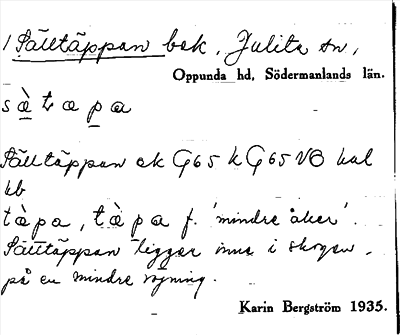 / Sälltäppan bek. Julita sn,
Oppunda hd, Södermanlands län.
sä̀tapa
Sälltäppan ek G65 k G65 VB kal
kb
tàpa, tàpa f. 'mindre åker'.
Sälltäppan ligger inne i skogen,
på en mindre röjning.
Karin Bergström 1935.